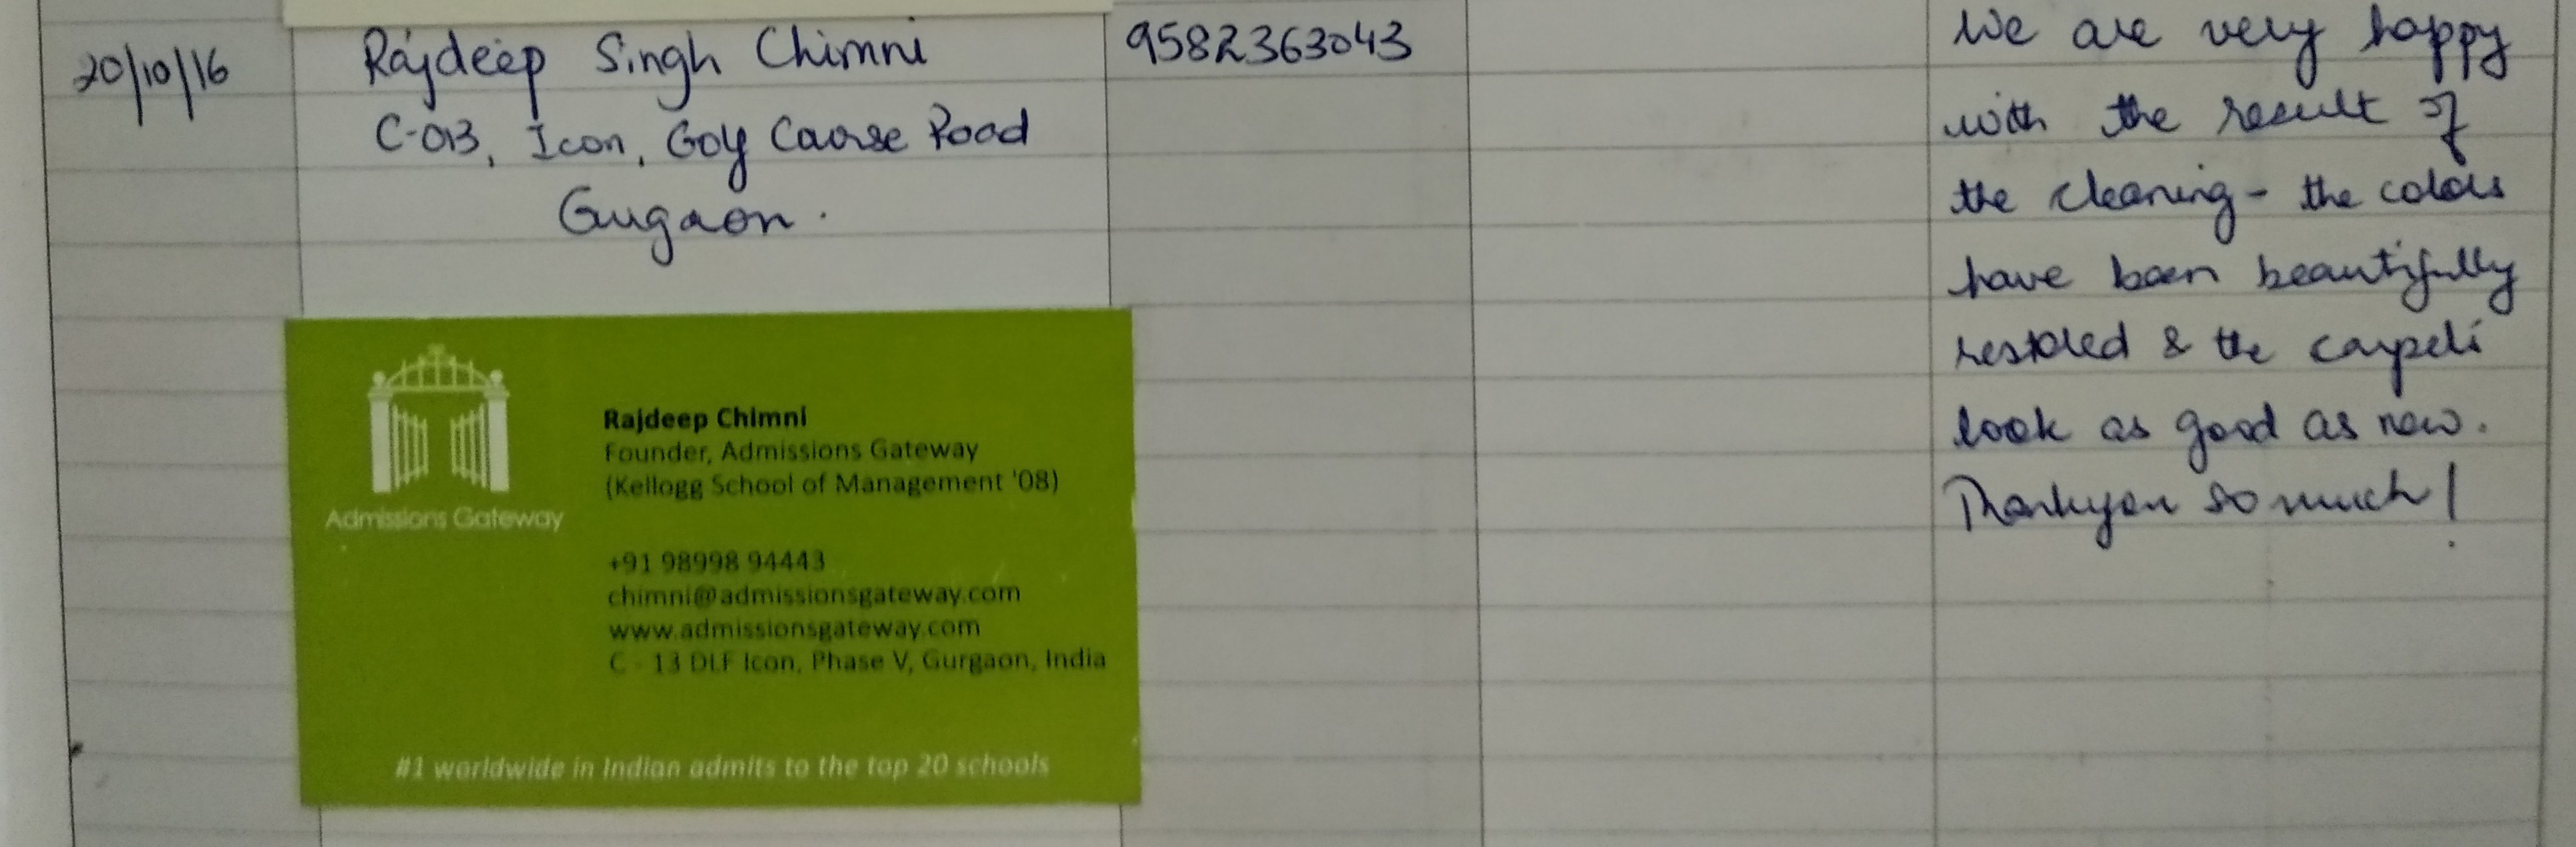 20/10/16
Rajdeep Singh Chimni
C-013, Icon, Golf Course Road
Gurgaon.
9582363043
We are very happy
with the result of
the cleaning - the colors
have been beautifully
restored & the carpets
look as good as new.
Thankyou so much!
Admissions Gateway
Rajdeep Chimni
Founder, Admissions Gateway
(Kellogg School of Management '08)
+91 98998 94443
chimni@admissionsgateway.com
www.admissionsgateway.com
C - 13 DLF Icon, Phase V, Gurgaon, India
#1 worldwide in Indian admits to the top 20 schools